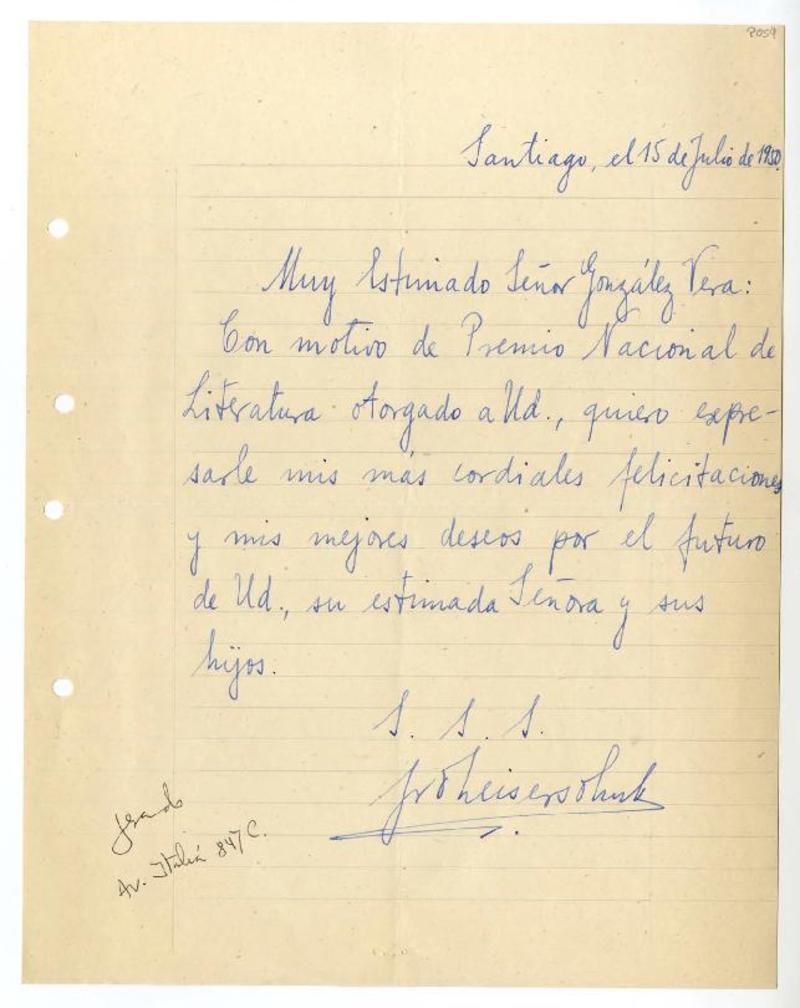 2059
Santiago, el 15 de Julio de 1950.
Muy Estimado Señor González Vera:
Con motivo de Premio Nacional de
Literatura otorgado a Ud., quiero expre-
sarle mis más cordiales felicitaciones
y mis mejores deseos por el futuro
de Ud., su estimada Señora y sus
hijos.
S. S. S.
Av. Italia 847 C.